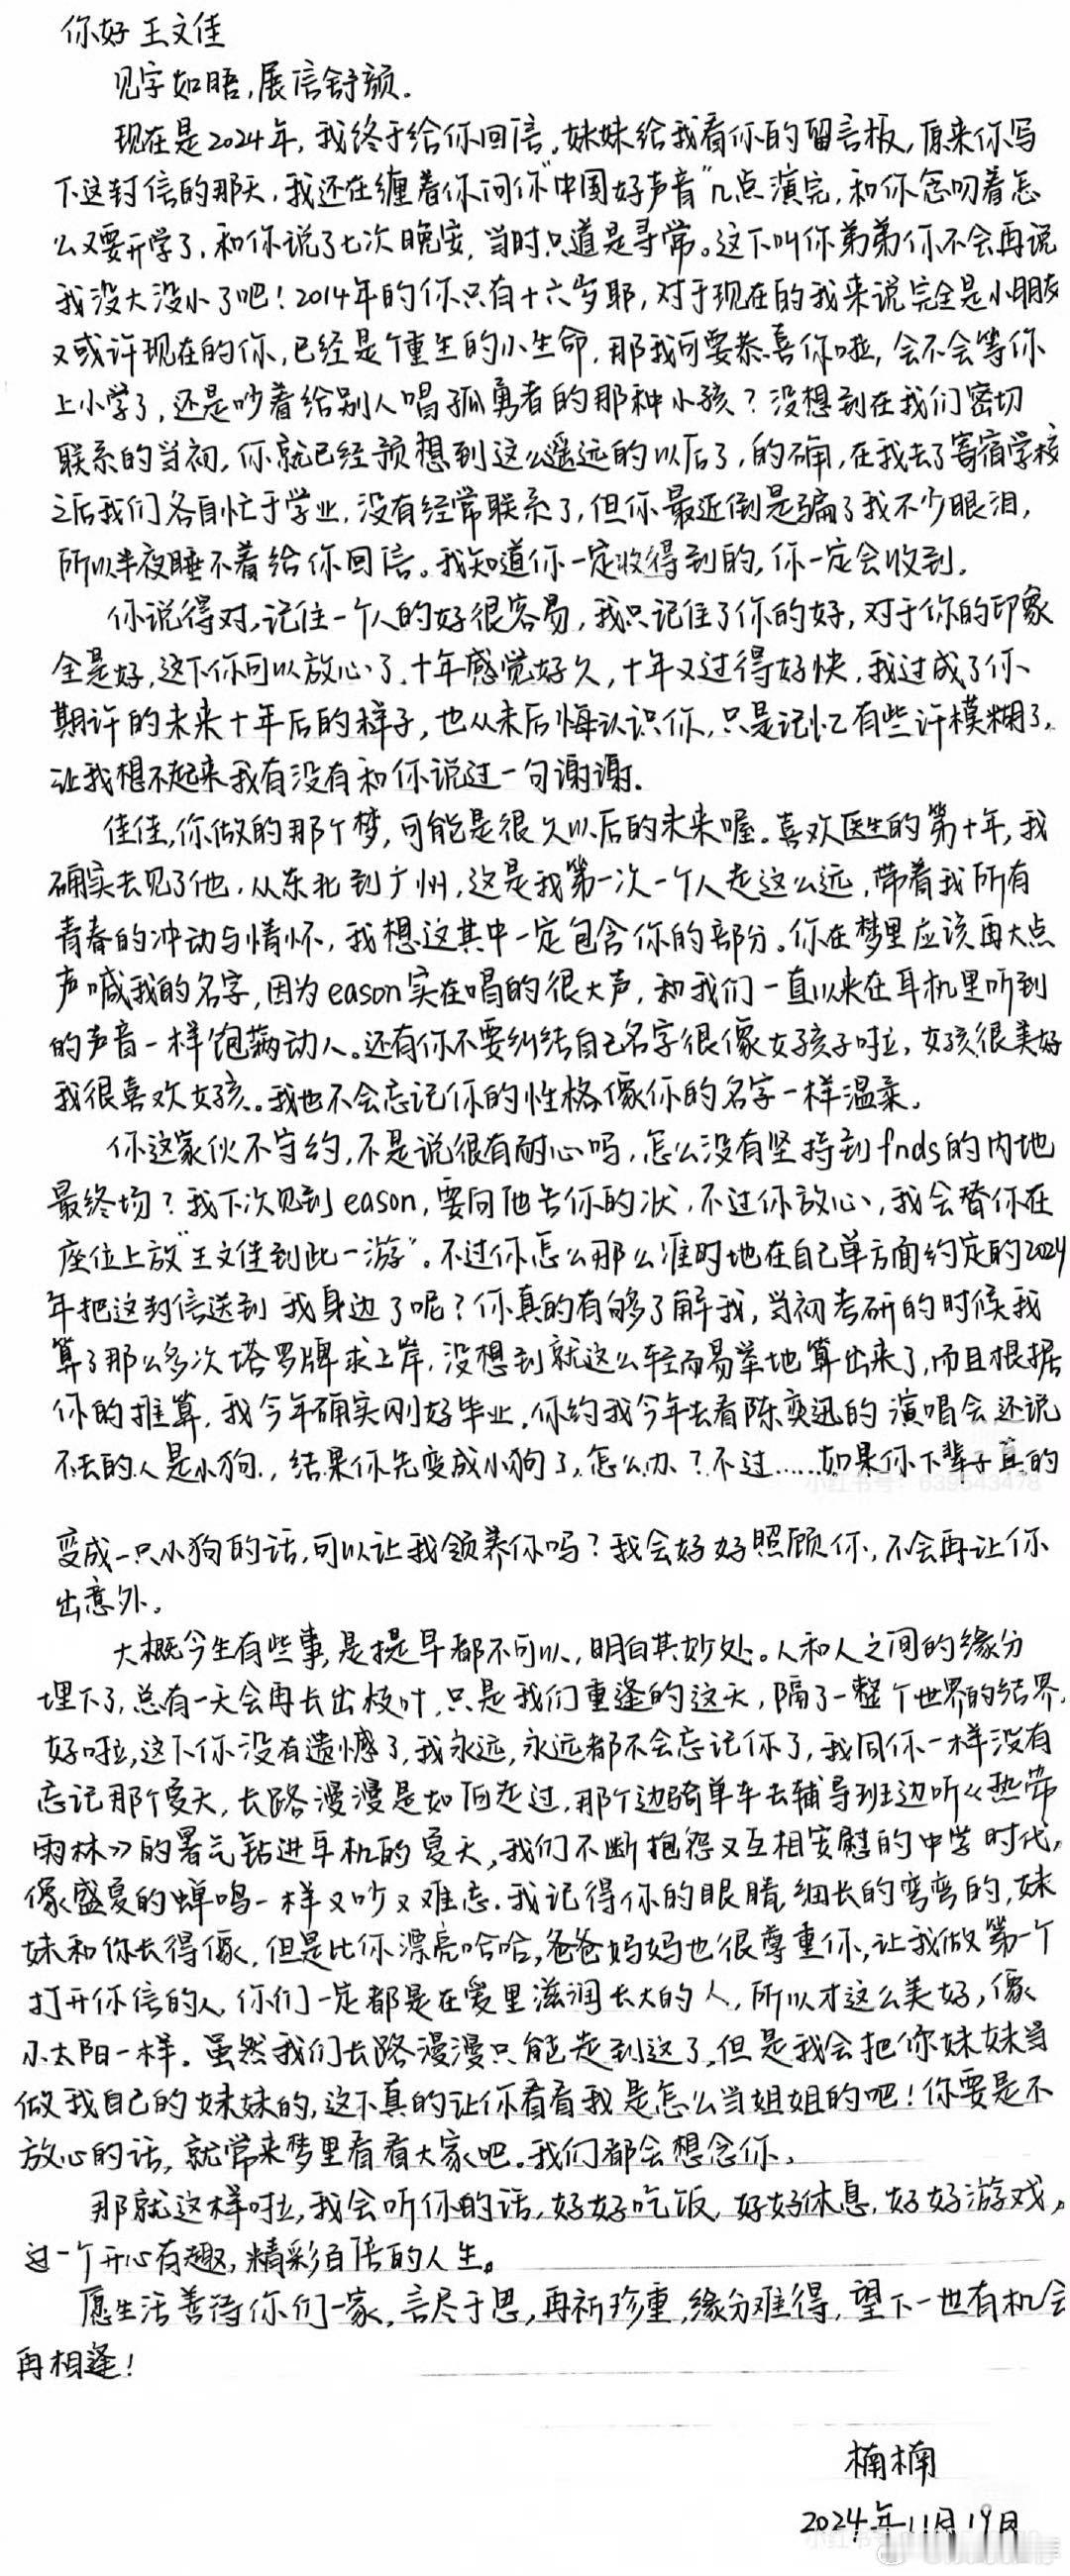 你好 王文佳
见字如晤,展信舒颜.
现在是2024年,我终于给你回信,妹妹给我看你的留言板,原来你写
下这封信的那天,我还在缠着你问你“中国好声音”几点演完,和你念叨着怎
么又要开学了,和你说了七次晚安,当时只道是寻常。这下叫你弟弟你不会再说
我没大没小了吧!2014年的你只有十六岁耶,对于现在的我来说完全是小朋友
又或许现在的你,已经是个重生的小生命,那我可要恭喜你啦,会不会等你
上小学了,还是吵着给别人唱孤勇者的那种小孩?没想到在我们密切
联系的当初,你就已经预想到这么遥远的以后了,的确,在我去了寄宿学校
之后我们各自忙于学业,没有经常联系了,但你最近倒是骗了我不少眼泪,
所以半夜睡不着给你回信。我知道你一定收得到的,你一定会收到.
你说得对,记住一个人的好很容易,我只记住了你的好,对于你的印象
全是好,这下你可以放心了.十年感觉好久,十年又过得好快,我过成了你
期许的未来十年后的样子,也从未后悔认识你,只是记忆有些许模糊了,
让我想不起来我有没有和你说过一句谢谢.
佳佳,你做的那个梦,可能是很久以后的未来喔。喜欢医生的第十年,我
确实去见了他.从东北到广州,这是我第一次一个人走这么远,带着我所有
青春的冲动与情怀,我想这其中一定包含你的部分。你在梦里应该再大点
声喊我的名字,因为eason实在唱的很大声,和我们一直以来在耳机里听到
的声音一样饱满动人。还有你不要纠结自己名字很像女孩子啦,女孩很美好
我很喜欢女孩。我也不会忘记你的性格像你的名字一样温柔.
你这家伙不守约,不是说很有耐心吗,怎么没有坚持到fnds的内地
最终场?我下次见到eason,要向他告你的状,不过你放心,我会替你在
座位上放“王文佳到此一游”。不过你怎么那么准时地在自己单方面约定的2024
年把这封信送到我身边了呢?你真的有够了解我,当初考研的时候我
算了那么多次塔罗牌求上岸,没想到就这么轻而易举地算出来了,而且根据
你的推算,我今年确实刚好毕业,你约我今年去看陈奕迅的演唱会还说
不去的人是小狗,结果你先变成小狗了,怎么办?不过……如果你下辈子真的
小红书号:639543478
变成一只小狗的话,可以让我领养你吗?我会好好照顾你,不会再让你
出意外。
大概今生有些事,是提早都不可以,明白其妙处。人和人之间的缘分
埋下了,总有一天会再长出枝叶,只是我们重逢的这天,隔了一整个世界的结界,
好啦,这下你没有遗憾了,我永远,永远都不会忘记你了,我同你一样没有
忘记那个夏天,长路漫漫是如何走过,那个边骑单车去辅导班边听《热带
雨林》的暑气钻进耳机的夏天,我们不断抱怨又互相安慰的中学时代,
像盛夏的蝉鸣一样又吵又难忘.我记得你的眼睛,细长的弯弯的,妹
妹和你长得像,但是比你漂亮哈哈,爸爸妈妈也很尊重你,让我做第一个
打开你信的人,你们一定都是在爱里滋润长大的人,所以才这么美好,像
小太阳一样。虽然我们长路漫漫只能走到这了,但是我会把你妹妹当
做我自己的妹妹的,这下真的让你看看我是怎么当姐姐的吧!你要是不
放心的话,就常来梦里看看大家吧。我们都会想念你.
那就这样啦,我会听你的话,好好吃饭,好好休息,好好游戏,
过一个开心有趣,精彩百倍的人生。
愿生活善待你们一家,言尽于思,再祈珍重,缘分难得,望下一世有机会
再相逢!
楠楠
2024年11月19日